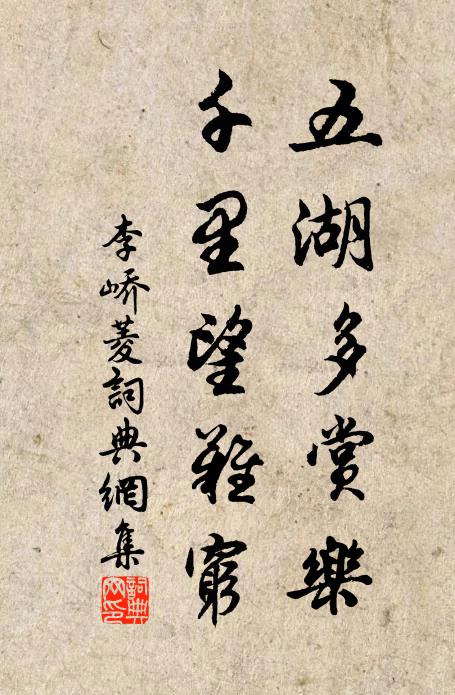 五湖多賞樂
千里望難窮
李嶠菱詞典網集
詞典网印